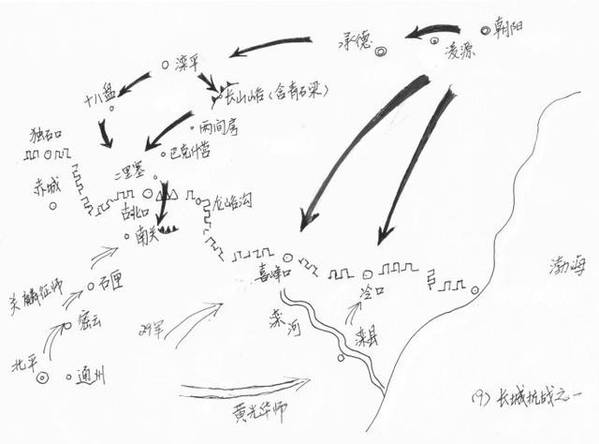 朝阳
凌源
承德
滦平
十八盘
长山峪（含青石梁）
两间房
巴克什营
独石口
二里寨
赤城
古北口
龙峪沟
南关
关麟征师
石匣
密云
北平
通州
29军
喜峰口
冷口
滦河
滦县
渤海
黄光华师
(9) 长城抗战之一